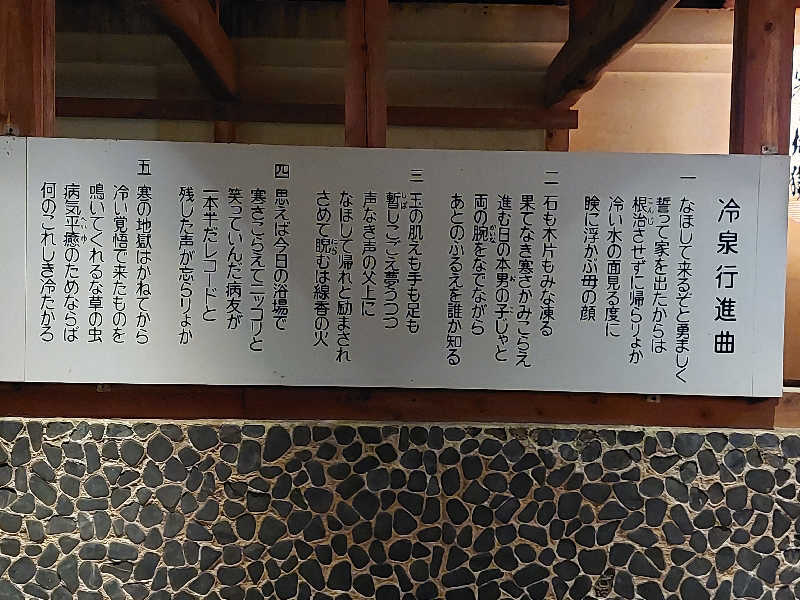 冷泉行進曲
一 なほして来るぞと勇ましく
誓って家を出たからは
根治させずに帰らりょか
冷い水の面見る度に
瞼に浮かぶ母の顔
二 石も木片もみな凍る
果てなき寒さかみこらえ
進む日の本男の子じゃと
両の腕をなでながら
あとのふるえを誰か知る
三 玉の肌えも手も足も
暫しこごえ夢うつつ
声なき声の父上に
なほして帰れと励まされ
さめて睨むは線香の火
四 思えば今日の浴場で
寒さこらえてニッコリと
笑っていんだ病友が
一本半だレコードと
残した声が忘らりょか
五 寒の地獄はかねてから
冷い覚悟で来たものを
鳴いてくれるな草の虫
病気平癒のためならば
何のこれしき冷たかろ